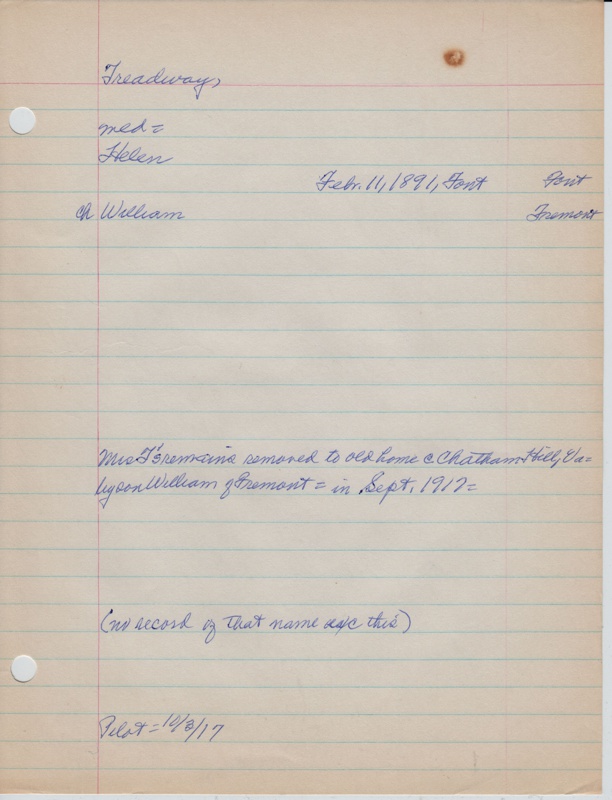 Treadway,
med =
Helen
Febr. 11, 1891, Font Font
ch William Fremont
Mrs T's remains removed to old home @ Chatham Hill, Va =
by son William of Fremont = in Sept. 1917 =
(no record of that name exc this)
Pilot = 10/3/17